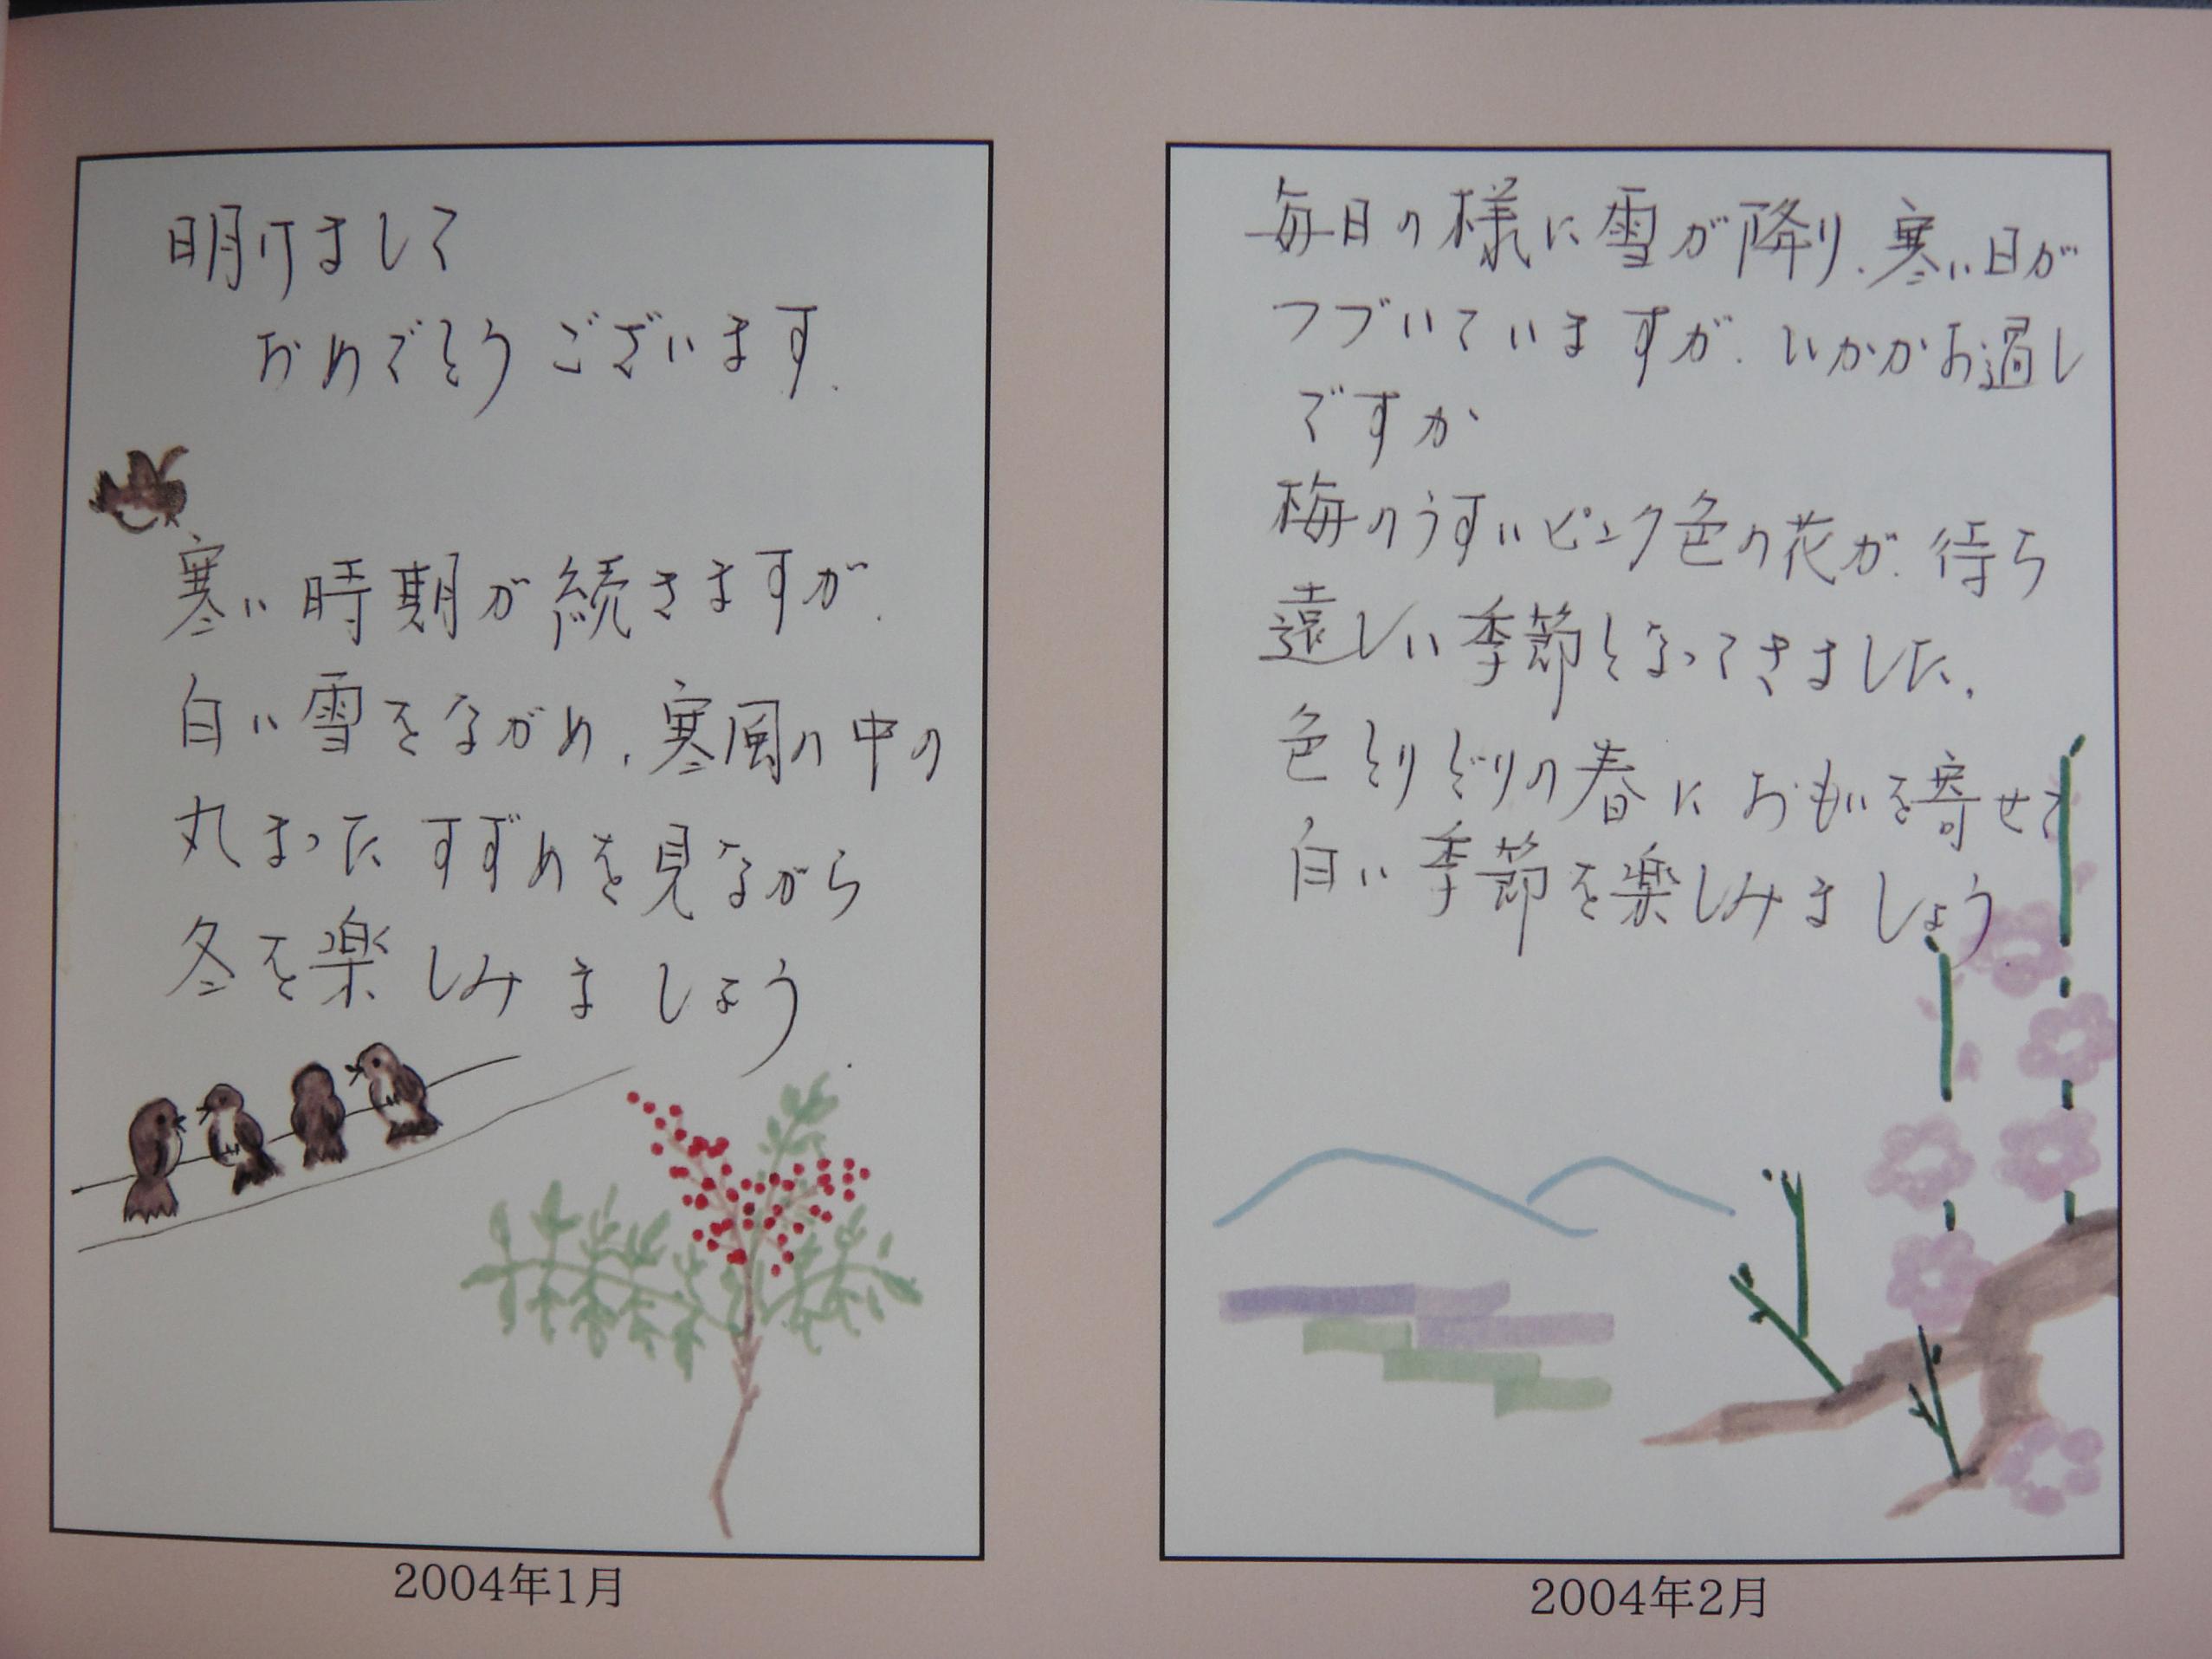 明けまして
おめでとうございます.
寒い時期が続きますが.
白い雪をながめ.寒風の中の
丸まったすずめを見ながら
冬を楽しみましょう.
2004年1月
毎日の様に雪が降り.寒い日が
つづいていますが.いかがお過し
ですか
梅のうすいピンク色の花が.待ち
遠しい季節となってきました.
色とりどりの春におもいを寄せて
白い季節を楽しみましょう.
2004年2月